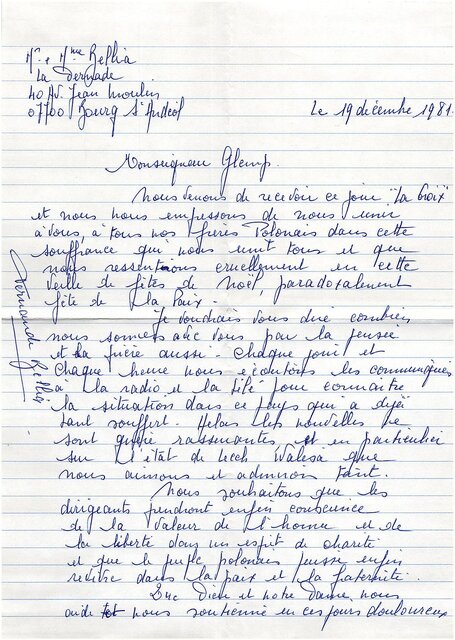 Mr et Mme Rellia
La Dernade
40 Av. Jean Moulin
07700 Bourg St Andéol
Le 19 décembre 1981.
Monseigneur Glemp.
Nous venons de recevoir ce jour "La Croix"
et nous nous empressons de nous unir
à vous, à tous nos frères Polonais dans cette
souffrance qui nous unit tous et que
nous ressentons cruellement en cette
veille de fêtes de Noël, paradoxalement
fête de la Paix.
Je voudrais vous dire combien
nous sommes avec vous par la pensée
et la prière aussi. Chaque jour et
chaque heure nous écoutons les communiqués
à la radio et la télé pour connaître
la situation dans ce pays qui a déjà
tant souffert. Hélas les nouvelles ne
sont guère rassurantes et en particulier
sur l'état de Lech Walesa que
nous aimons et admirons tant.
Nous souhaitons que les
dirigeants prendront enfin conscience
de la valeur de l'homme et de
la liberté dans un esprit de charité
et que le peuple polonais puisse enfin
revivre dans la paix et la fraternité.
Que Dieu et notre Dame nous
aide et nous soutienne en ces jours douloureux
Fernande Rellia